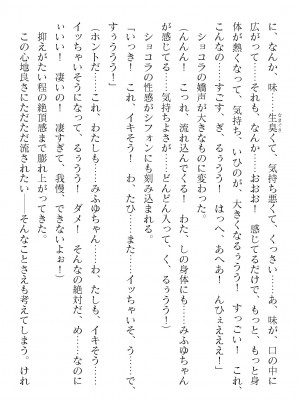 に、なんか、味、生臭くて、気持ち悪くて、くっさい、あ、味が、口の中に
広がって……それも、なんか……おおお！　感じてるだけで、もっと、もっと身
体が熱くなって、気持ち、いひのが、大きくなるうう！　すっごい！　これ、
こんなの……すごす、ぎ、るううう！　はっへ、あへあ！　んひぇえええ！」
ショコラの嬌声が大きなものに変わった。
（んんん！　これっ、流れ込んでくる！　わた、しの身体にも……みふゆちゃん
が感じてる……気持ちよさが……どんどん入って、く、るうううう！）
ショコラの性感がシフォンにも刻み込まれる。
「いっき！　これ、イキそう！　わ、たひ……また……イッちゃいそ、う……で、
すううう！」
（ホントだ……これ、わたしも……みふゆちゃん……わ、たしも、イキそう……
イッちゃいそうになって、るううう！　ダメ！　そんなの絶対だ、め……なのに
いいい！　凄いの！　凄すぎて、我慢、できないよぉ！）
抑えがたい程の絶頂感まで膨れ上がってきた。
この心地良さにただただ流されたい――そんなことさえも考えてしまう。けれ